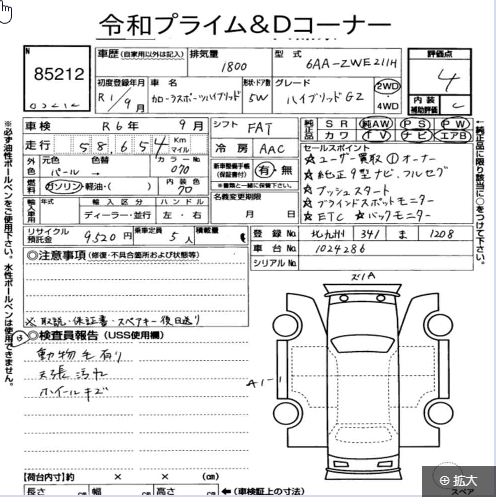 令和プライム&Dコーナー
N
85212
車歴 (自家用以外は記入)
排気量
1800
型式
6AA-ZWE211H
評価点
4
初度登録年月
R1/9月
車名
カローラスポーツハイブリッド
形状・ドア数
5W
グレード
ハイブリッドGZ
2WD
4WD
内装
補助評価
C
車検
R6年 9月
シフト
FAT
純正品
SR 純AW PS PW
カワ TV ナビ エアB
走行
58,654
Km
マイル
冷房
AAC
セールスポイント
☆ユーザー買取 ①オーナー
☆純正9型ナビ、フルセグ
☆プッシュスタート
☆ブラインドスポットモニター
☆ETC ☆バックモニター
外色
元色
パール
色替
→
カラーNo
070
新車整備手帳
(保証書付)
有・無
※書類と一緒に保管して下さい。
燃料
ガソリン・軽油・( )
内装色
70
名義変更期限
月 日
輸入車用
輸入区分
ハンドル
ディーラー・並行
左・右
リサイクル預託金
9520円
乗車定員
5人
積載量
登録No
北九州 341 ま 1208
車台No
1024286
シリアルNo
◎注意事項 (修復・不具合箇所および状態等)
※取説・保証書・スペアキー後日送り
◎検査員報告 (USS使用欄)
動物毛有り
天張汚れ
ホイールキズ
ズ1A
A1-1
【荷台内寸】約 × × (cm)
長さ cm 幅 cm 高さ cm
←(車検証上の寸法)
スペア
拡大
※必ず油性ボールペンをご使用下さい。水性ボールペンは使用できません。
←純正品に限り該当に○をつけて下さい。